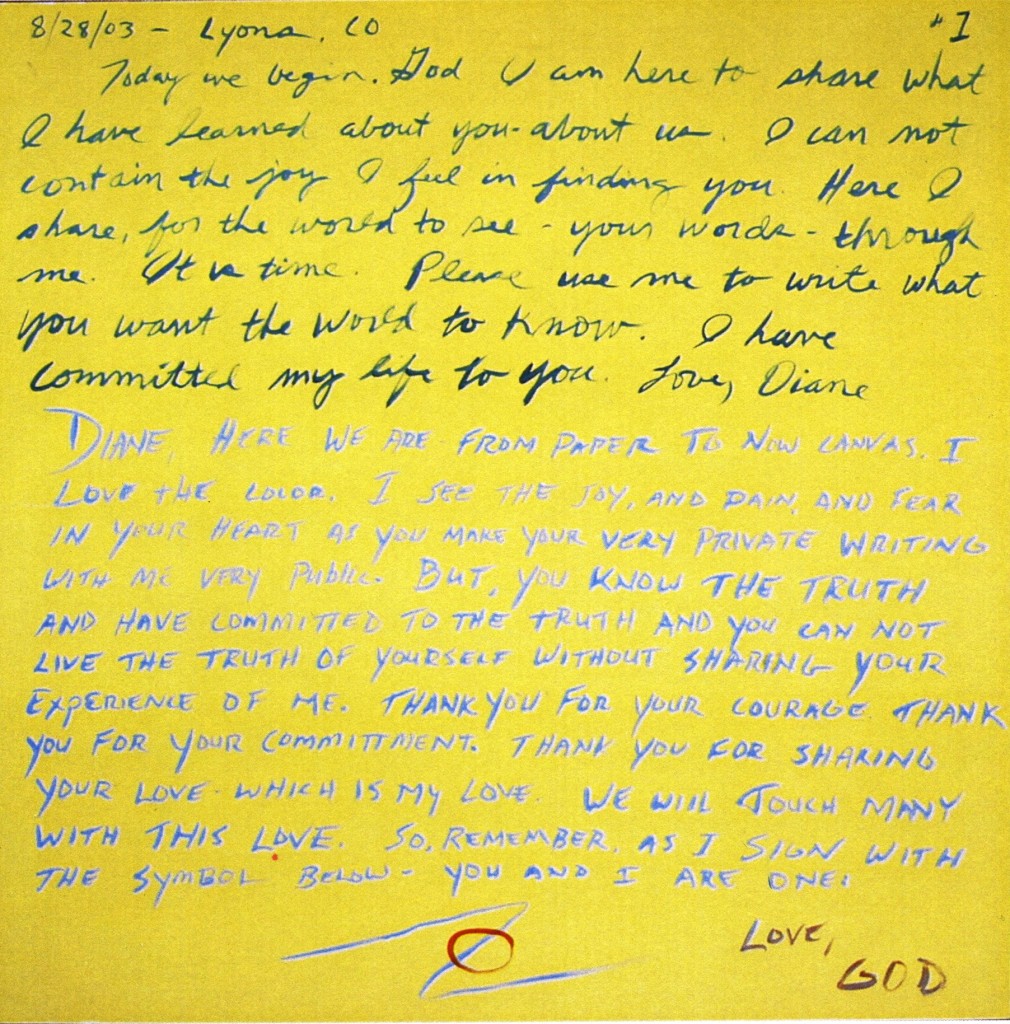 8/28/03 - Lyons, CO #1
Today we begin. God I am here to share what
I have learned about you - about us. I can not
contain the joy I feel in finding you. Here I
share, for the world to see - your words - through
me. It is time. Please use me to write what
you want the world to know. I have
committed my life to you. Love, Diane
DIANE, HERE WE ARE FROM PAPER TO NOW CANVAS. I
LOVE THE COLOR. I SEE THE JOY, AND PAIN, AND FEAR
IN YOUR HEART AS YOU MAKE YOUR VERY PRIVATE WRITING
WITH ME VERY PUBLIC. BUT, YOU KNOW THE TRUTH
AND HAVE COMMITTED TO THE TRUTH AND YOU CAN NOT
LIVE THE TRUTH OF YOURSELF WITHOUT SHARING YOUR
EXPERIENCE OF ME. THANK YOU FOR YOUR COURAGE. THANK
YOU FOR YOUR COMMITTMENT. THANK YOU FOR SHARING
YOUR LOVE - WHICH IS MY LOVE. WE WILL TOUCH MANY
WITH THIS LOVE. SO, REMEMBER, AS I SIGN WITH
THE SYMBOL BELOW - YOU AND I ARE ONE:
LOVE,
GOD